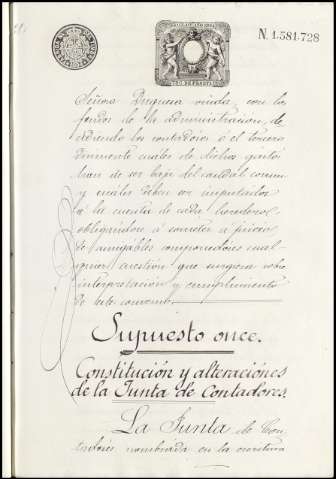 N. 1.581.728
Señora Duquesa viuda, con los
fondos de la administración, de-
cidiendo los contadores ó el tercero
dirimente cuales de dichos gastos
han de ser baja del caudal comun
y cuáles deben ser imputados
á la cuenta de cada heredero,
obligándose á someter a juicio
de amigables componedores cual-
quier cuestion que surgiera sobre
interpretación y cumplimiento
de este convenio.
Supuesto once.
Constitución y alteraciónes
de la Junta de Contadores.
La Junta de Con-
tadores nombrada en la escritura